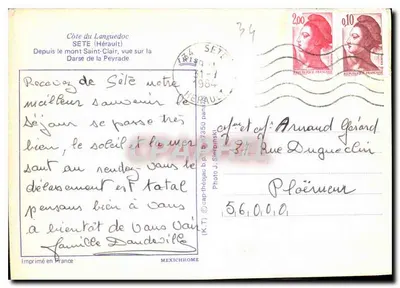 34
Côte du Languedoc
SETE (Hérault)
Depuis le mont Saint-Clair, vue sur la
Darse de la Peyrade
34 SETE
1984
HERAULT
2,00
0,10
Recevez de Sète notre
meilleur souvenir le
séjour se passe très
bien, le soleil et la mer
sont au rendez-vous le
délassement est total
pensons bien à vous
a bientôt de vous voir
famille Dandeville
Mr et Mme Arnaud Gérard
Rue Duguesclin
Ploërmeur
56000
Imprimé en France
MEXICHROME